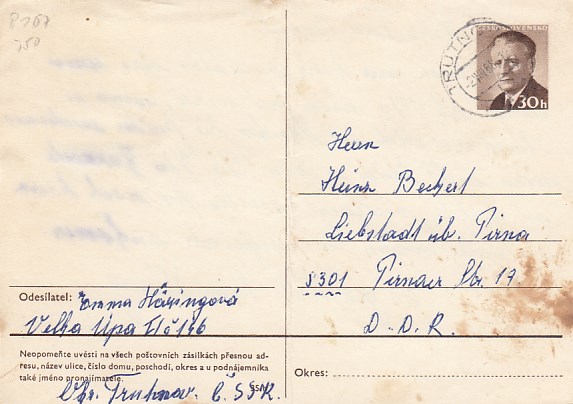 P 267
250
ČESKOSLOVENSKO
TRUTNOV
30 h
Herrn
Heinz Bechert
Liebstadt üb. Pirna
8301 Pirnaer Str. 17
D. D. R.
Odesílatel: Emma Häringová
Velka Upa II č 146
Neopomeňte uvésti na všech poštovních zásilkách přesnou ad-
resu, název ulice, číslo domu, poschodí, okres a u podnájemníka
také jméno pronajímatele.
Okr. Trutnov. Č.S.S.R.
Okres: